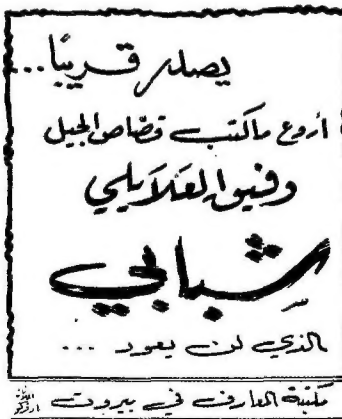 يصدر قريبًا...
أروع ما كتب قصّاص الجيل
وفيق العلايلي
شبابي
الذي لن يعود ...
مكتبة المعارف في بيروت